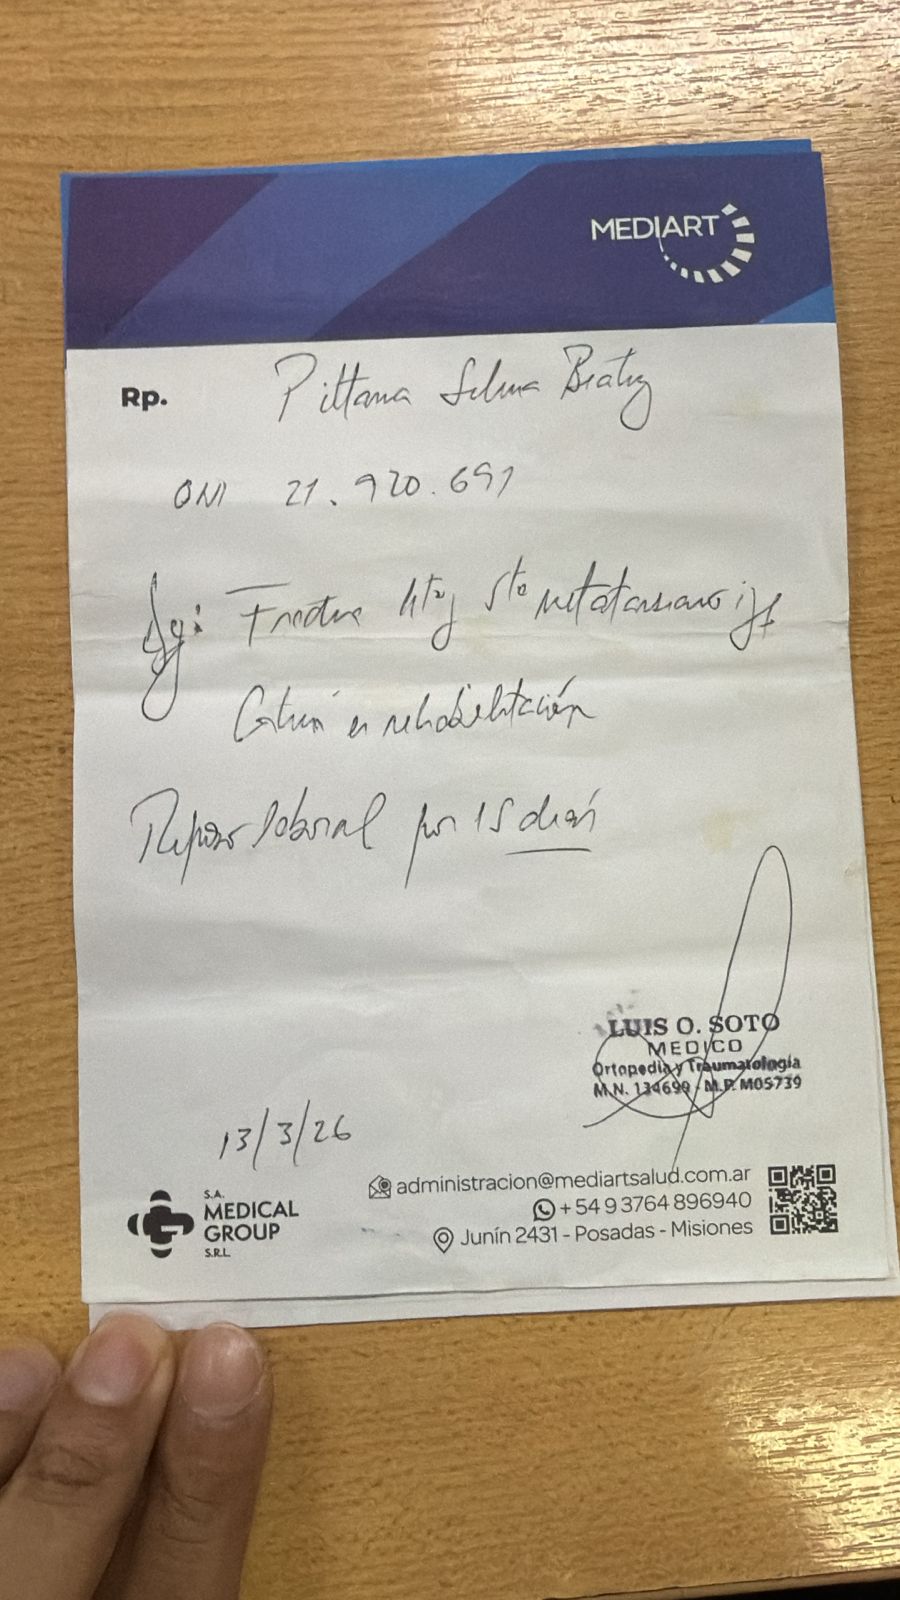 MEDIART
Rp. Pittana Selma Beatriz
DNI 21.920.691
Dg: Fractura 4to y 5to metatarsiano izq
Continúa en rehabilitación
Reposo laboral por 15 días
LUIS O. SOTO
MEDICO
Ortopedia y Traumatología
M.N. 134699 - M.P. M05739
13/3/26
S.A.
MEDICAL
GROUP
S.R.L.
administracion@mediartsalud.com.ar
+54 9 3764 896940
Junín 2431 - Posadas - Misiones